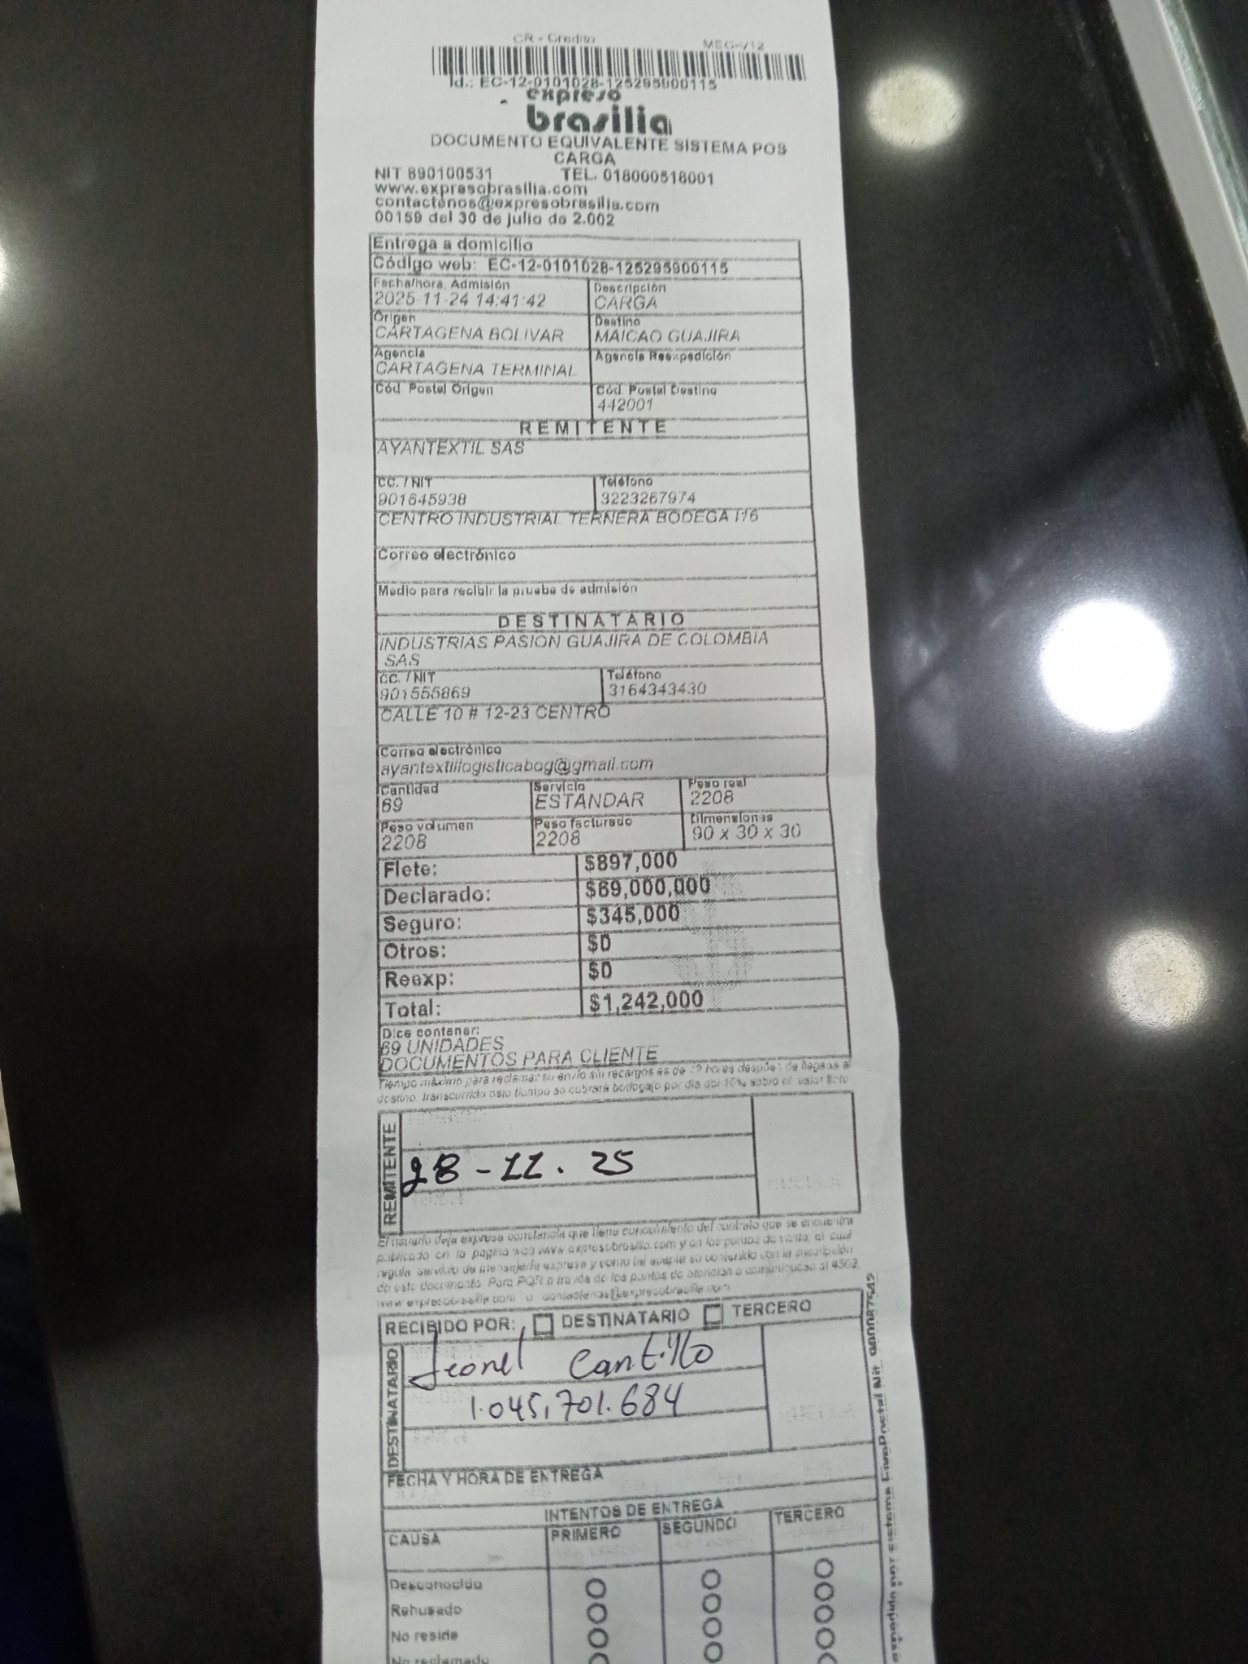 CR - Credito MEG-V12
Id.: EC-12-0101028-125295900115
expreso
brasilia
DOCUMENTO EQUIVALENTE SISTEMA POS
CARGA
NIT 890100531 TEL. 018000518001
www.expresobrasilia.com
contactenos@expresobrasilia.com
00159 del 30 de julio de 2.002
Entrega a domicilio
Código web: EC-12-0101028-125295900115
Fecha/hora, Admisión Descripción
2025-11-24 14:41:42 CARGA
Origen Destino
CARTAGENA BOLIVAR MAICAO GUAJIRA
Agencia Agencia Reexpedición
CARTAGENA TERMINAL
Cód. Postal Origen Cód. Postal Destino
442001
REMITENTE
AYANTEXTIL SAS
CC. / NIT Teléfono
901645938 3223267974
CENTRO INDUSTRIAL TERNERA BODEGA I16
Correo electrónico
Medio para recibir la prueba de admisión
DESTINATARIO
INDUSTRIAS PASION GUAJIRA DE COLOMBIA
SAS
CC. / NIT Teléfono
901555869 3164343430
CALLE 10 # 12-23 CENTRO
Correo electrónico
ayantextillogisticabog@gmail.com
Cantidad Servicio Peso real
69 ESTANDAR 2208
Peso volumen Peso facturado Dimensiones
2208 2208 90 x 30 x 30
Flete: $897,000
Declarado: $69,000,000
Seguro: $345,000
Otros: $0
Reexp: $0
Total: $1,242,000
Dice contener:
69 UNIDADES
DOCUMENTOS PARA CLIENTE
Tiempo máximo para reclamar su envío sin recargos es de 72 horas después de llegada al
destino, transcurrido este tiempo se cobrará bodegaje por día del 10% sobre el valor flete
REMITENTE
28 - 11 . 25
El usuario deja expresa constancia que tiene conocimiento del contrato que se encuentra
publicado en la pagina web www.expresobrasilia.com y en los puntos de venta, el cual
regula servicio de mensajería expresa y como tal acepta su contenido con la suscripción
de este documento. Para PQR a través de los puntos de atención o comunicarse al 4502
www.expresobrasilia.com o contactenos@expresobrasilia.com
RECIBIDO POR: DESTINATARIO TERCERO
DESTINATARIO
Leonel Cantillo
1.045.701.684
FECHA Y HORA DE ENTREGA
INTENTOS DE ENTREGA
CAUSA PRIMERO SEGUNDO TERCERO
Desconocido
Rehusado
No reside
No reclamado